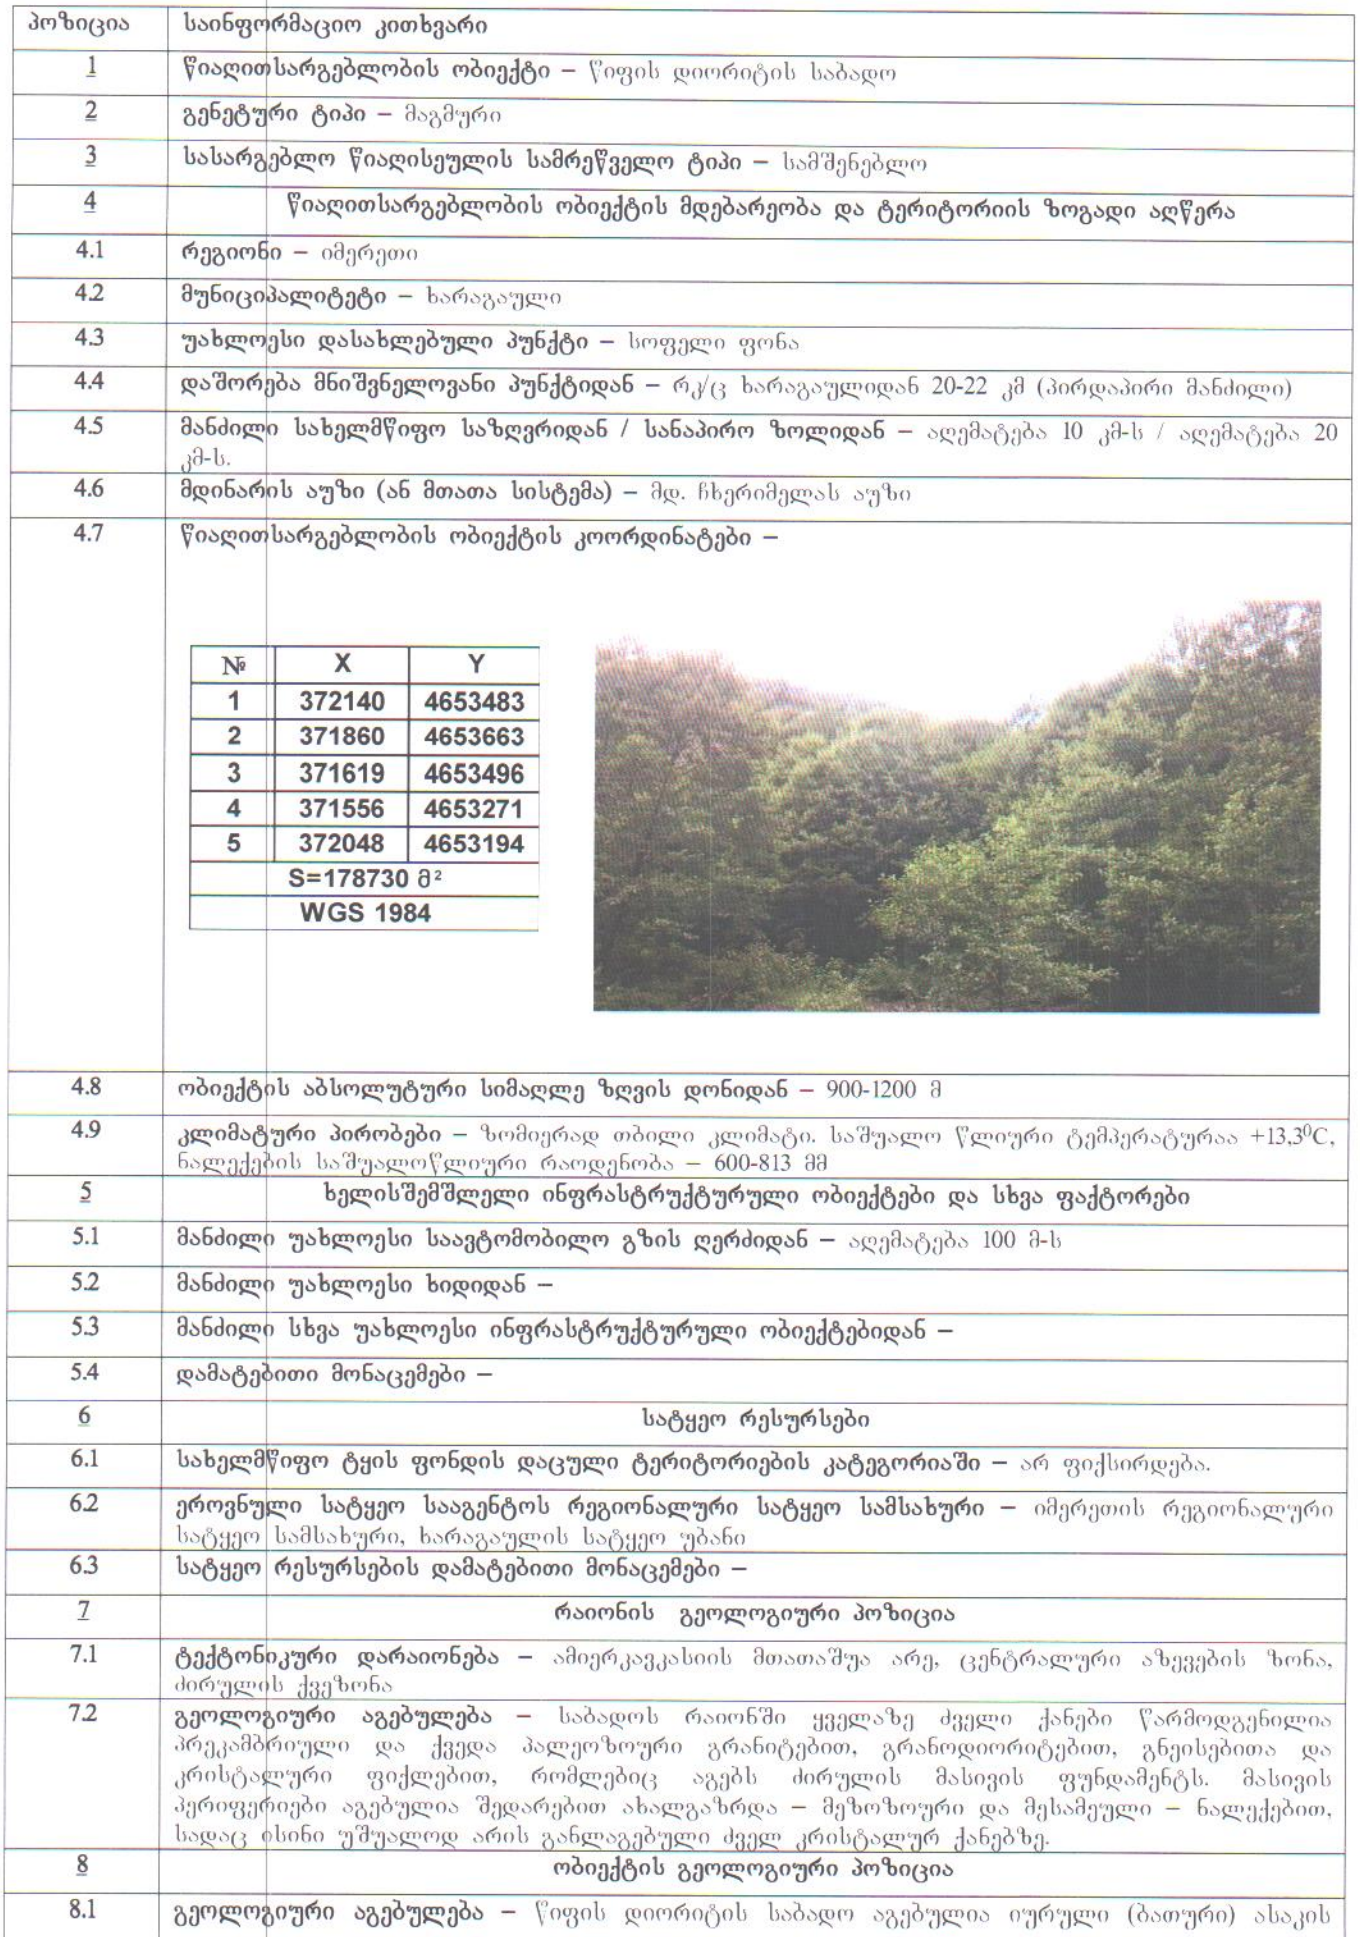 პოზიცია საინფორმაციო კითხვარი
1 წიაღითსარგებლობის ობიექტი – წიფის დიორიტის საბადო
2 გენეტური ტიპი – მაგმური
3 სასარგებლო წიაღისეულის სამრეწველო ტიპი – სამშენებლო
4 წიაღითსარგებლობის ობიექტის მდებარეობა და ტერიტორიის ზოგადი აღწერა
4.1 რეგიონი – იმერეთი
4.2 მუნიციპალიტეტი – ხარაგაული
4.3 უახლოესი დასახლებული პუნქტი – სოფელი ფონა
4.4 დაშორება მნიშვნელოვანი პუნქტიდან – რკ/ც ხარაგაულიდან 20-22 კმ (პირდაპირი მანძილი)
4.5 მანძილი სახელმწიფო საზღვრიდან / სანაპირო ზოლიდან – აღემატება 10 კმ-ს / აღემატება 20
კმ-ს.
4.6 მდინარის აუზი (ან მთათა სისტემა) – მდ. ჩხერიმელას აუზი
4.7 წიაღითსარგებლობის ობიექტის კოორდინატები –
№ X Y
1 372140 4653483
2 371860 4653663
3 371619 4653496
4 371556 4653271
5 372048 4653194
S=178730 მ²
WGS 1984
4.8 ობიექტის აბსოლუტური სიმაღლე ზღვის დონიდან – 900-1200 მ
4.9 კლიმატური პირობები – ზომიერად თბილი კლიმატი. საშუალო წლიური ტემპერატურაა +13,3⁰C,
ნალექების საშუალოწლიური რაოდენობა – 600-813 მმ
5 ხელისშემშლელი ინფრასტრუქტურული ობიექტები და სხვა ფაქტორები
5.1 მანძილი უახლოესი საავტომობილო გზის ღერძიდან – აღემატება 100 მ-ს
5.2 მანძილი უახლოესი ხიდიდან –
5.3 მანძილი სხვა უახლოესი ინფრასტრუქტურული ობიექტებიდან –
5.4 დამატებითი მონაცემები –
6 სატყეო რესურსები
6.1 სახელმწიფო ტყის ფონდის დაცული ტერიტორიების კატეგორიაში – არ ფიქსირდება.
6.2 ეროვნული სატყეო სააგენტოს რეგიონალური სატყეო სამსახური – იმერეთის რეგიონალური
სატყეო სამსახური, ხარაგაულის სატყეო უბანი
6.3 სატყეო რესურსების დამატებითი მონაცემები –
7 რაიონის გეოლოგიური პოზიცია
7.1 ტექტონიკური დარაიონება – ამიერკავკასიის მთათაშუა არე, ცენტრალური აზევების ზონა,
ძირულის ქვეზონა
7.2 გეოლოგიური აგებულება – საბადოს რაიონში ყველაზე ძველი ქანები წარმოდგენილია
პრეკამბრიული და ქვედა პალეოზოური გრანიტებით, გრანოდიორიტებით, გნეისებითა და
კრისტალური ფიქლებით, რომლებიც აგებს ძირულის მასივის ფუნდამენტს. მასივის
პერიფერიები აგებულია შედარებით ახალგაზრდა – მეზოზოური და მესამეული – ნალექებით,
სადაც ისინი უშუალოდ არის განლაგებული ძველ კრისტალურ ქანებზე.
8 ობიექტის გეოლოგიური პოზიცია
8.1 გეოლოგიური აგებულება – წიფის დიორიტის საბადო აგებულია იურული (ბათური) ასაკის